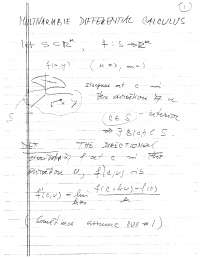 ①
MULTIVARIABLE DIFFERENTIAL CALCULUS
Let S ⊂ ℝⁿ, f : S → ℝᵐ
f(x, y) (n = 2, m = 1)
at c in
the direction of u
c ∈ S - interior
⇒ ∃ B(c) ⊂ S.
DEF THE DIRECTIONAL
of f at c in the
direction u, f'(c,u) is
f'(c,u) = lim f(c+hu) - f(c)
h→0 h
(Sometimes assume ‖u‖ = 1)